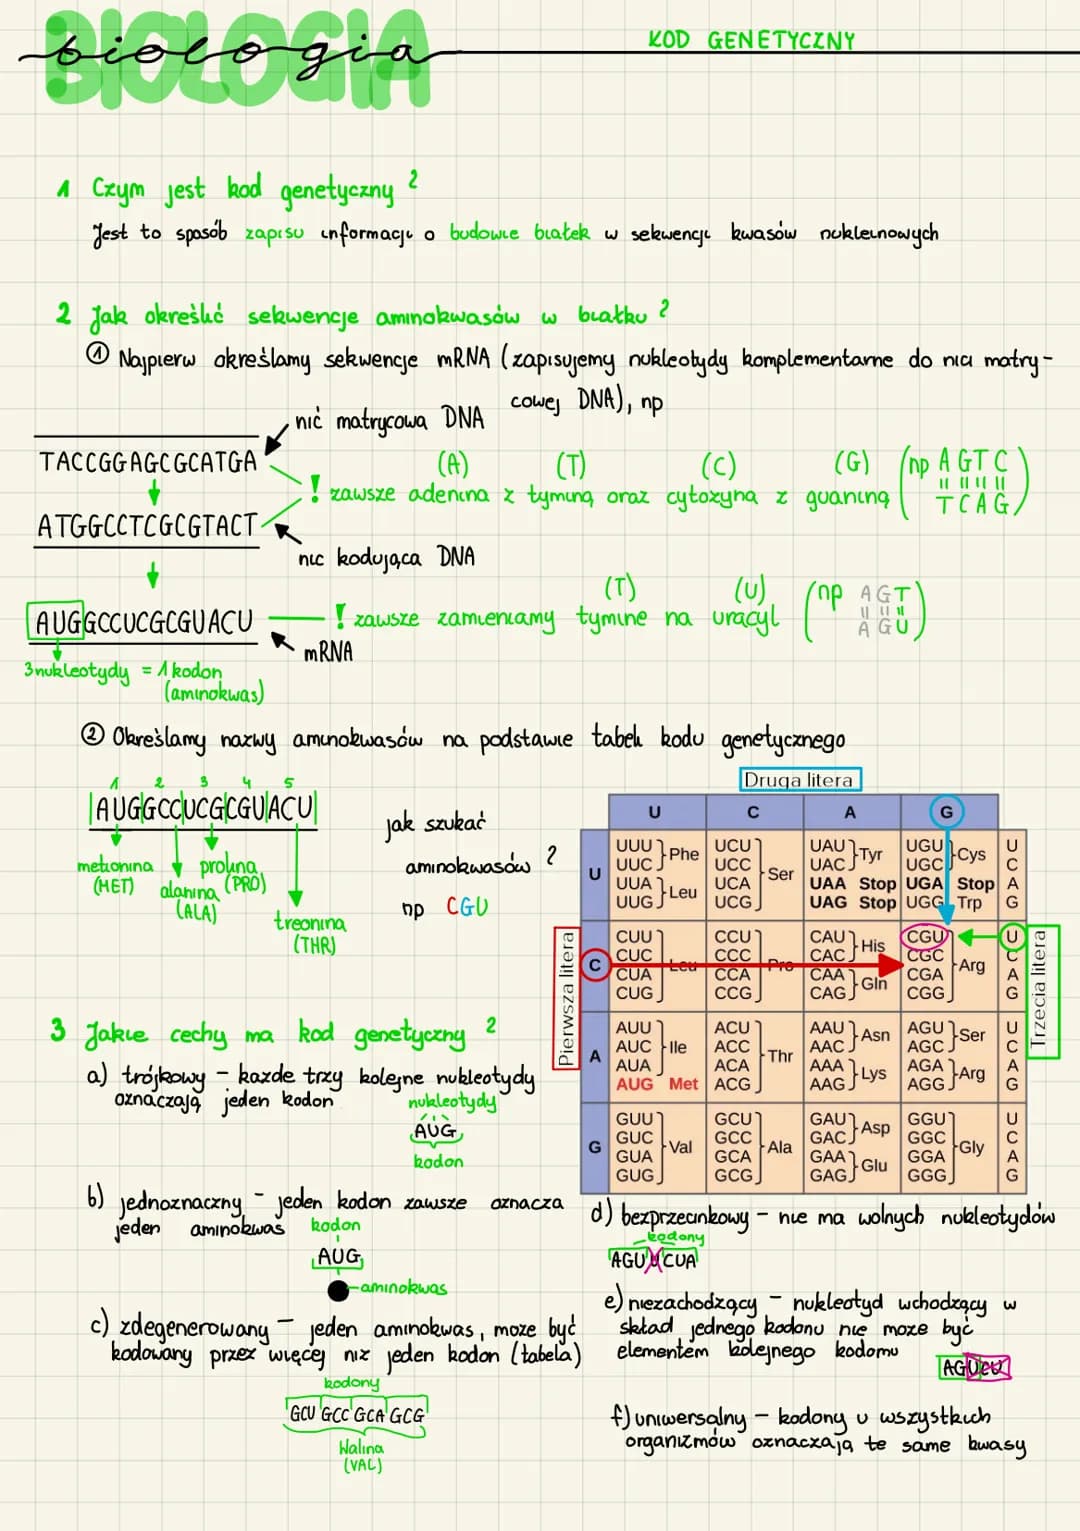 BIOLOGIA
biologia
KOD GENETYCZNY
1 Czym jest kod genetyczny ?
Jest to sposób zapisu informacji o budowie białek w sekwencji kwasów nukleinowych
2 Jak określić sekwencje aminokwasów w białku ?
① Najpierw określamy sekwencje mRNA (zapisujemy nukleotydy komplementarne do nici matry-
cowej DNA), np
nić matrycowa DNA
TACCGGAGCGCATGA
(A) (T) (C) (G)
! zawsze adenina z tyminą oraz cytozyna z guaniną
(np AGTC
TCAG)
ATGGCCTCGCGTACT
nić kodująca DNA
(T) (U)
AUGGCCUCGCGUACU
! zawsze zamieniamy tymine na uracyl
(np AGT
AGU)
mRNA
3 nukleotydy = 1 kodon
(aminokwas)
② Określamy nazwy aminokwasów na podstawie tabeli kodu genetycznego
1 2 3 4 5
|AUG|GCC|UCG|CGU|ACU|
metionina
(MET)
alanina
(ALA)
prolina
(PRO)
treonina
(THR)
jak szukać
aminokwasów ?
np CGU
Druga litera
U C A G
Pierwsza litera
Trzecia litera
U
UUU UUC Phe
UUA UUG Leu
UCU UCC UCA UCG Ser
UAU UAC Tyr
UAA Stop
UAG Stop
UGU UGC Cys
UGA Stop
UGG Trp
U C A G
C
CUU CUC CUA CUG Leu
CCU CCC CCA CCG Pro
CAU CAC His
CAA CAG Gln
CGU CGC CGA CGG Arg
U C A G
A
AUU AUC AUA Ile
AUG Met
ACU ACC ACA ACG Thr
AAU AAC Asn
AAA AAG Lys
AGU AGC Ser
AGA AGG Arg
U C A G
G
GUU GUC GUA GUG Val
GCU GCC GCA GCG Ala
GAU GAC Asp
GAA GAG Glu
GGU GGC GGA GGG Gly
U C A G
3 Jakie cechy ma kod genetyczny ?
a) trójkowy – każde trzy kolejne nukleotydy
oznaczają jeden kodon
nukleotydy
AUG
kodon
b) jednoznaczny – jeden kodon zawsze oznacza
jeden aminokwas
kodon
AUG
aminokwas
c) zdegenerowany – jeden aminokwas, może być
kodowany przez więcej niż jeden kodon (tabela)
kodony
GCU GCC GCA GCG
Walina
(VAL)
d) bezprzecinkowy – nie ma wolnych nukleotydów
kodony
AGUUCUA
e) niezachodzący – nukleotyd wchodzący w
skład jednego kodonu nie może być
elementem kolejnego kodomu
AGUCU
f) uniwersalny – kodony u wszystkich
organizmów oznaczają te same kwasy